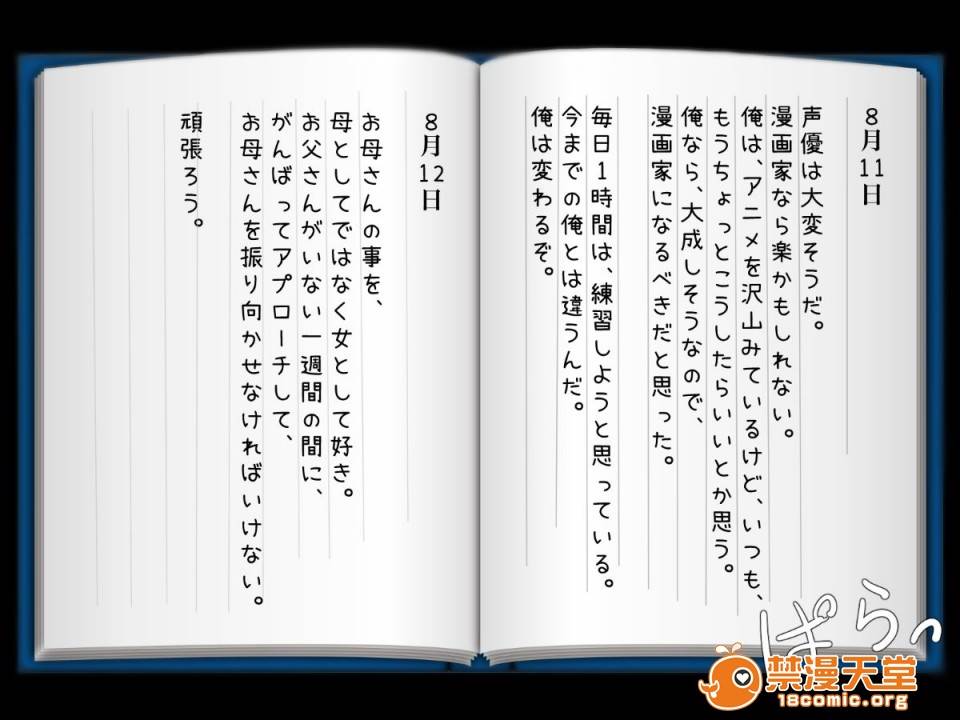 8月11日
声優は大変そうだ。
漫画家なら楽かもしれない。
俺は、アニメを沢山みているけど、いつも、
もうちょっとこうしたらいいとか思う。
俺なら、大成しそうなので、
漫画家になるべきだと思った。
毎日1時間は、練習しようと思っている。
今までの俺とは違うんだ。
俺は変わるぞ。
8月12日
お母さんの事を、
母としてではなく女として好き。
お父さんがいない一週間の間に、
がんばってアプローチして、
お母さんを振り向かせなければいけない。
頑張ろう。
ぱらっ
禁漫天堂
18comic.org